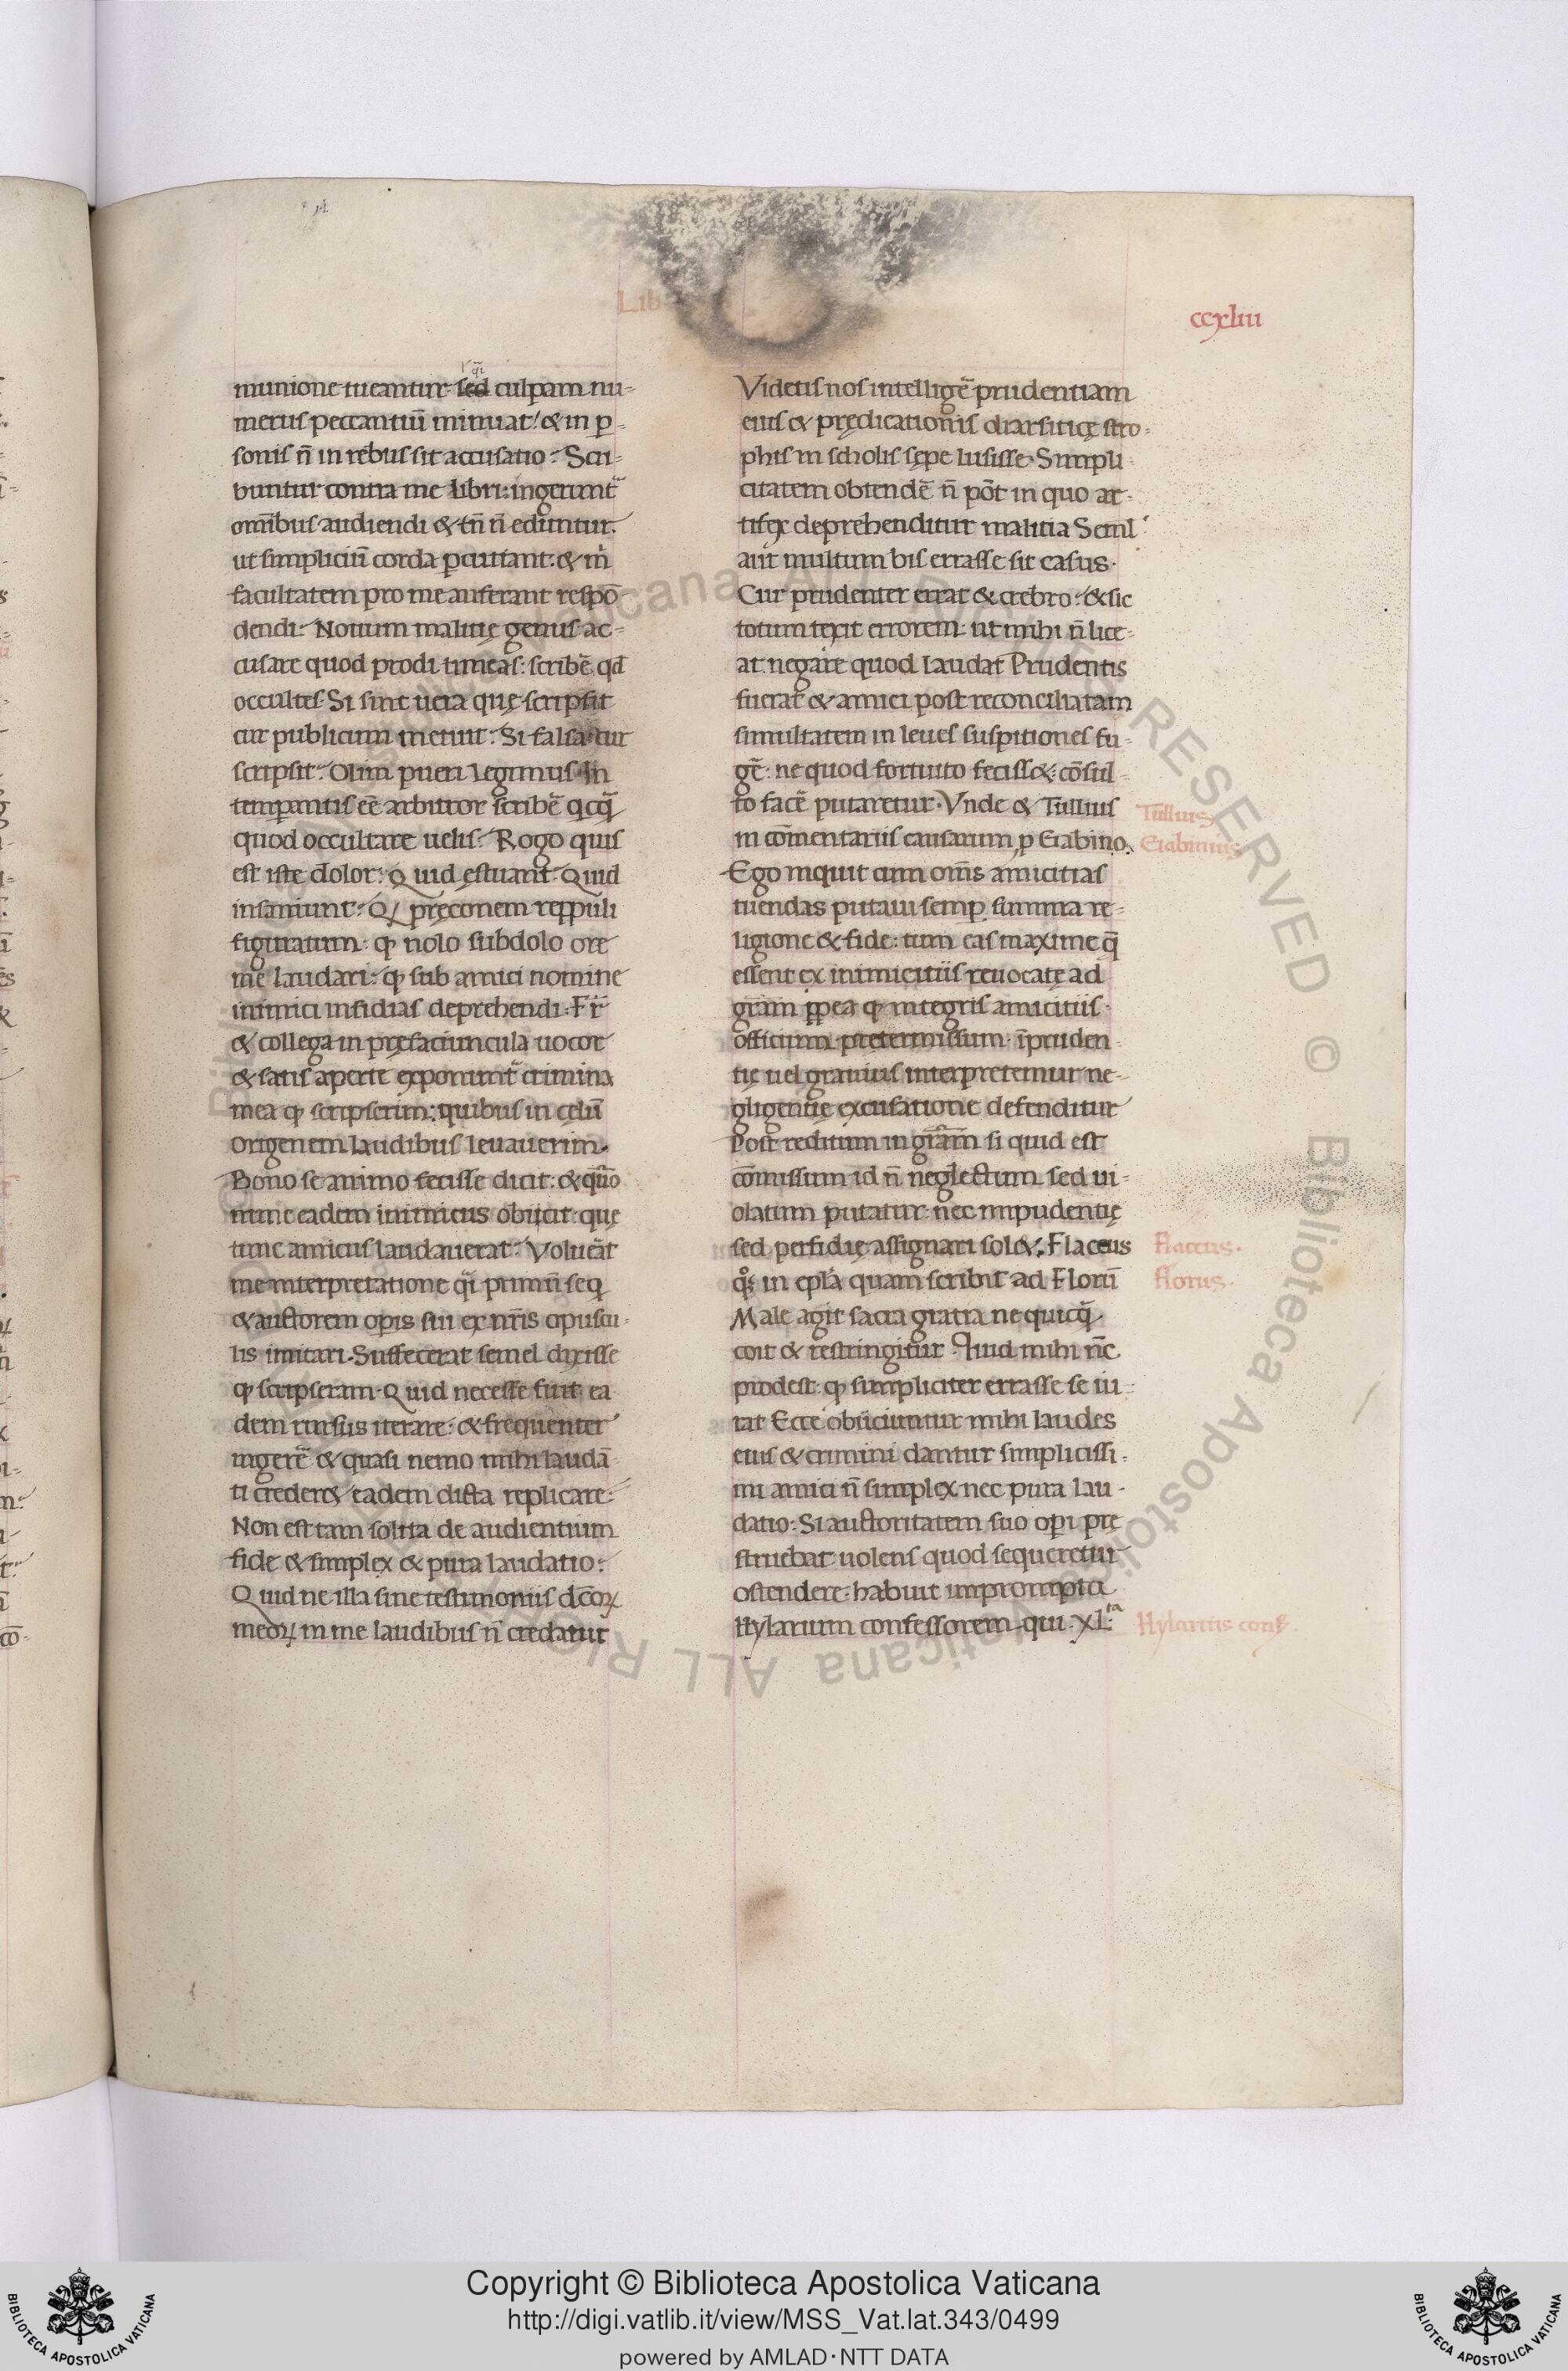 Lib
ccxliii
munione tueantur sed culpam nu-
merus peccantiū minuat! & in p̱-
sonis n̄ in rebus sit accusatio. Scri-
buntur contra me libri: ingerunt᷑
omībus audiendi & tn̄ n̄ eduntur.
ut simpliciū corda ꝑcutiant. & m̄
facultatem pro me auferant respō-
dendi. Nouum malitię genus ac-
cusare quod prodi timeas: scribē, qd̄
occultes. Si sint uera quę scripsit
cur publicum metuit. Si falsa cur
scripsit. Olim pueri legimus. In
temꝑantis eē arbitror scribē qcq̄
quod occultare uelis. Rogo quis
est iste dolor: Quid ęstuant. Quid
insaniunt. Q pręconem reppuli
figuratum: ꝙ nolo subdolo ore
me laudari: ꝙ sub amici nomine
inimici insidias deprehendi. Fr̄
& collega in pręfaciuncula uocor
& satis aperte exponunt᷑ crimina
mea ꝙ scripserim: quibus in cęlū
origenem laudibus leuauerim.
Bono se animo fecisse dicit: & qūo
nunc eadem inimicus obiicit: quę
tunc amicus laudauerat. Voluerat
me interpretatione qi primū seq
& auctorem opis sui ex nr̄is opuscu-
lis imitari. Suffecerat semel dixisse
ꝙ scripseram. Quid necesse fuit ea
dem rursus iterare: & frequenter
ingerē & quasi nemo mihi laudā
ti crederet eadem dicta replicare.
Non est tam solita de audientium
fide & simplex & pura laudatio.
Quid ne illa sine testimoniis dc̄oꝝ
meoꝝ in me laudibus n̄ credatur
Videtis nos intelligē prudentiam
eius & prędicationis diarsiticę stro-
phis in scholis sępe lusisse. Simpli
citatem obtendē n̄ pōt in quo ar-
tifex deprehenditur malitia Seml
aut multum bis errasse sit casus.
Cur prudenter errat & crebro. & sic
totum texit errorem ut mihi n̄ lice-
at negare quod laudat Prudentis
fuerat & amici post reconciliatam
simultatem in leues suspitiones fu-
gē: ne quod fortuito fecisset: cōsul-
to facē putaretur. Vnde & Tullius
in cōmentariis causarum p̱ Gabino.
Ego inquit cum om̄s amicitias
tuendas putaui semꝑ summa re-
ligione & fide: tum eas maxime q̄
essent ex inimicitiis reuocatę ad
gr̄am ꝓpea ꝙ integris amicitiis
officium pretermissum īpruden
tię uel grauius interpretemur ne-
gligentię excusatione defenditur
Post reditum in gr̄am si quid est
cōmissum id n̄ neglectum sed ui-
olatum putatur nec impudentię
sed perfidię assignari solet. Flaccus
qͦꝫ in epl̄a quam scribit ad Florū
Male agit sacra gratia ne quicq̄
coit & restringitur. Quid mihi nc̄
prodest ꝙ simpliciter errasse se iu-
rat Ecce obiiciuntur mihi laudes
eius & crimini dantur simplicissi-
mi amici n̄ simplex nec pura lau-
datio. Si auctoritatem suo opi prę
struebat uolens quod sequeretur
ostendere habuit impromptu
Hylarium confessorem qui .XLᵗᵃ
Tullius
Gabinius
Flaccus.
florus.
Hylarius conf.
Copyright © Biblioteca Apostolica Vaticana
http://digi.vatlib.it/view/MSS_Vat.lat.343/0499
powered by AMLAD·NTT DATA
BIBLIOTECA APOSTOLICA VATICANA
BIBLIOTECA APOSTOLICA VATICANA